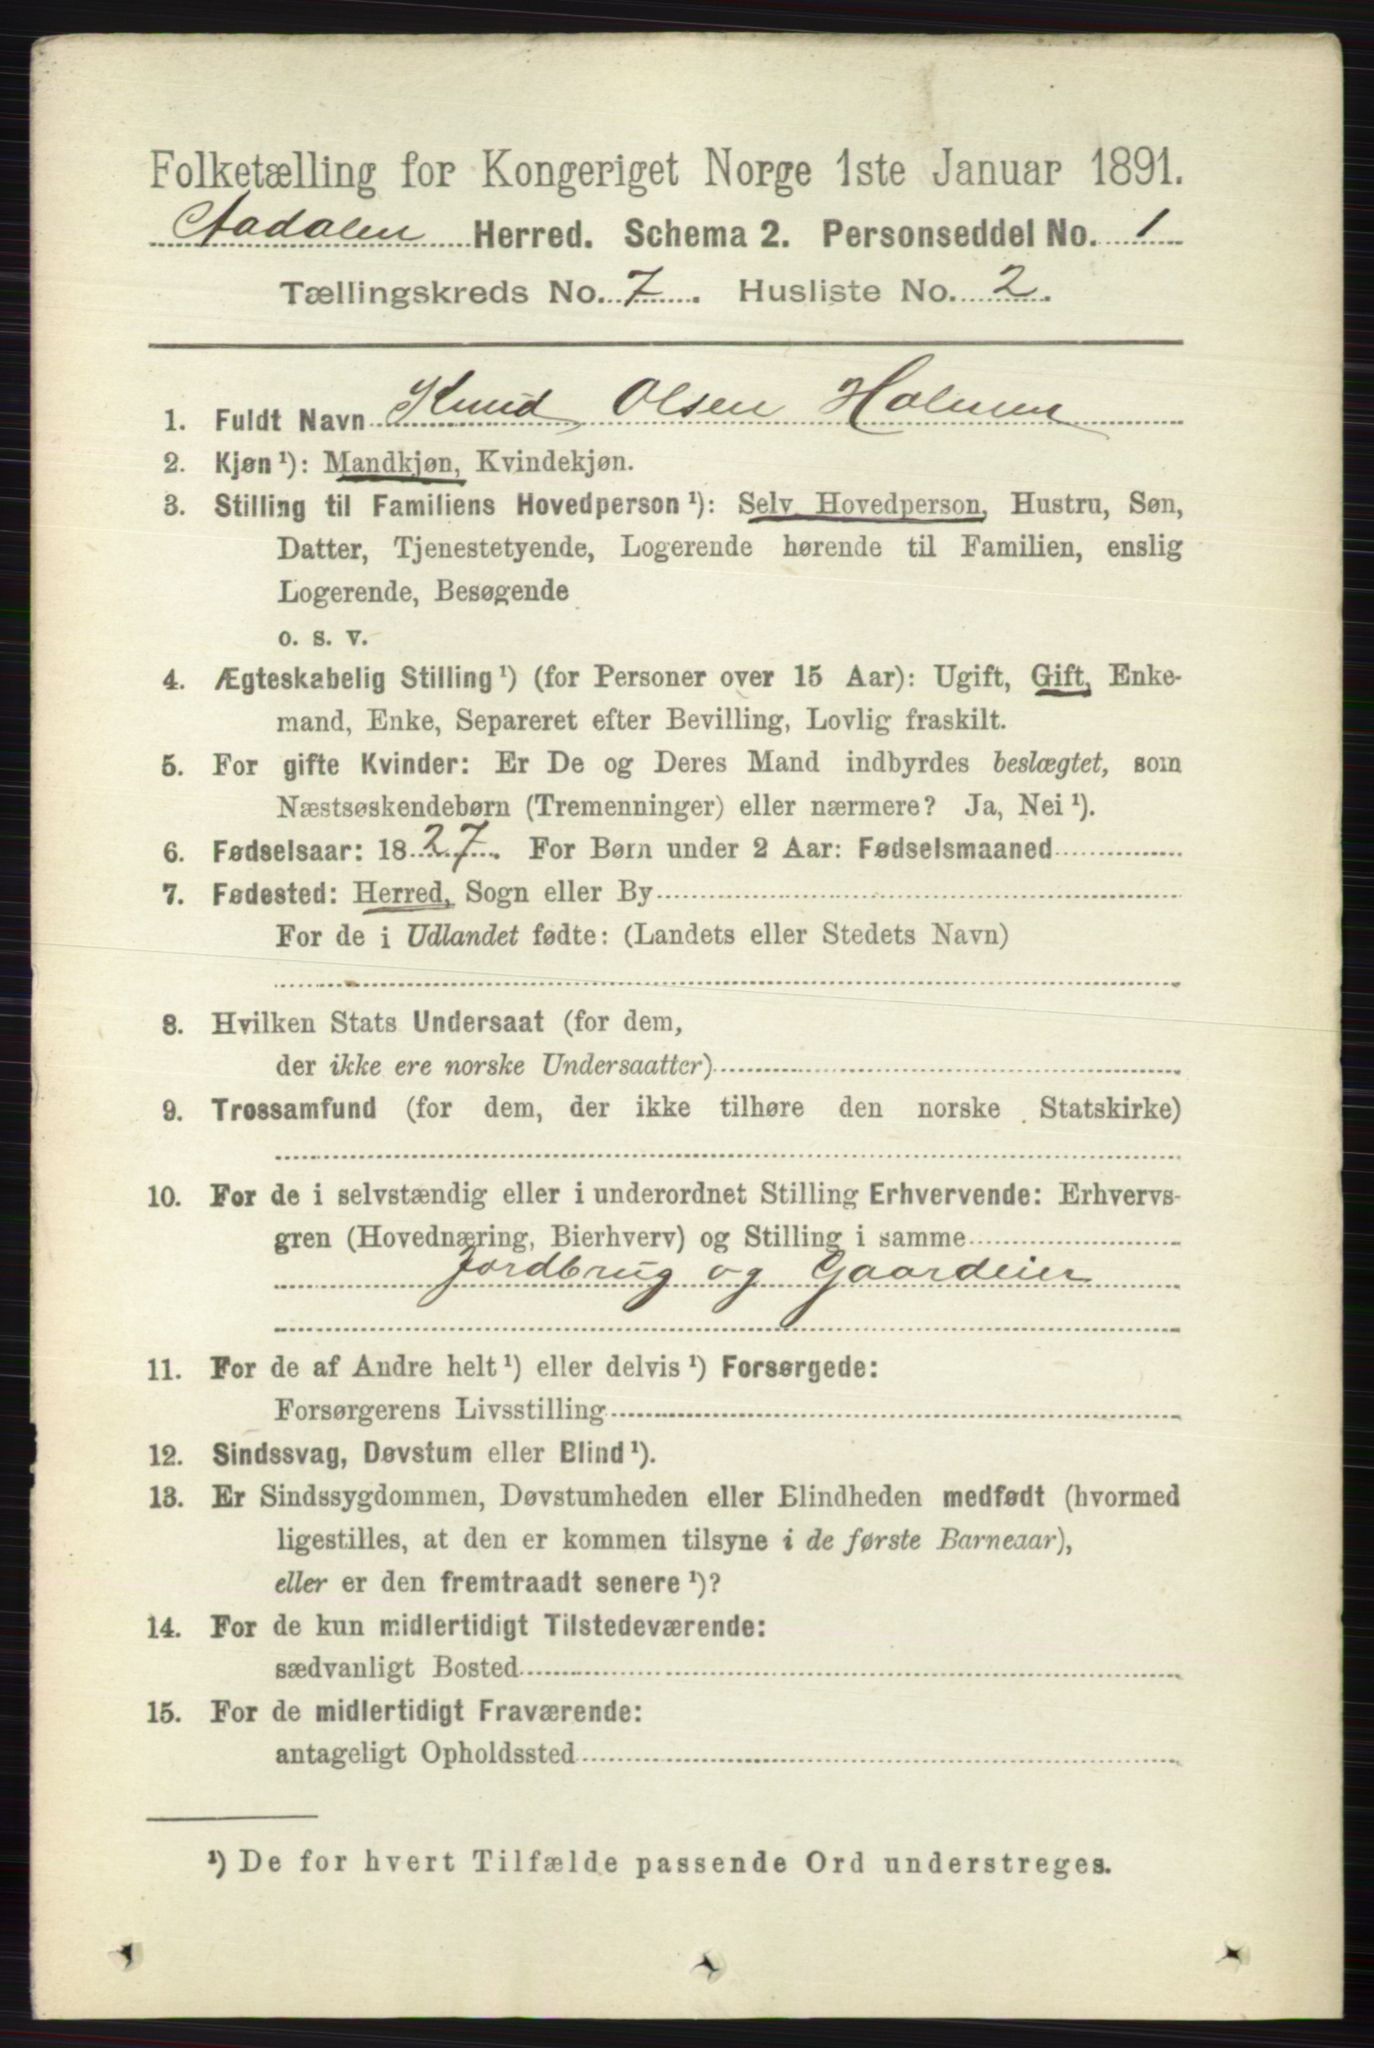 Folketælling for Kongeriget Norge 1ste Januar 1891.
Aadalen Herred. Schema 2. Personseddel No. 1
Tællingskreds No. 7. Husliste No. 2.
1. Fuldt Navn Knud Olsen Holmen
2. Kjøn ¹): Mandkjøn, Kvindekjøn.
3. Stilling til Familiens Hovedperson ¹): Selv Hovedperson, Hustru, Søn,
Datter, Tjenestetyende, Logerende hørende til Familien, enslig
Logerende, Besøgende
o. s. v.
4. Ægteskabelig Stilling ¹) (for Personer over 15 Aar): Ugift, Gift, Enke-
mand, Enke, Separeret efter Bevilling, Lovlig fraskilt.
5. For gifte Kvinder: Er De og Deres Mand indbyrdes beslægtet, som
Næstsøskendebørn (Tremenninger) eller nærmere? Ja, Nei ¹).
6. Fødselsaar: 1827. For Børn under 2 Aar: Fødselsmaaned
7. Fødested: Herred, Sogn eller By
For de i Udlandet fødte: (Landets eller Stedets Navn)
8. Hvilken Stats Undersaat (for dem,
der ikke ere norske Undersaatter)
9. Trossamfund (for dem, der ikke tilhøre den norske Statskirke)
10. For de i selvstændig eller i underordnet Stilling Erhvervende: Erhvervs-
gren (Hovednæring, Bierhverv) og Stilling i samme
Jordbrug og Gaardeier
11. For de af Andre helt ¹) eller delvis ¹) Forsørgede:
Forsørgerens Livsstilling
12. Sindssvag, Døvstum eller Blind ¹).
13. Er Sindssygdommen, Døvstumheden eller Blindheden medfødt (hvormed
ligestilles, at den er kommen tilsyne i de første Barneaar),
eller er den fremtraadt senere ¹)?
14. For de kun midlertidigt Tilstedeværende:
sædvanligt Bosted
15. For de midlertidigt Fraværende:
antageligt Opholdssted
¹) De for hvert Tilfælde passende Ord understreges.